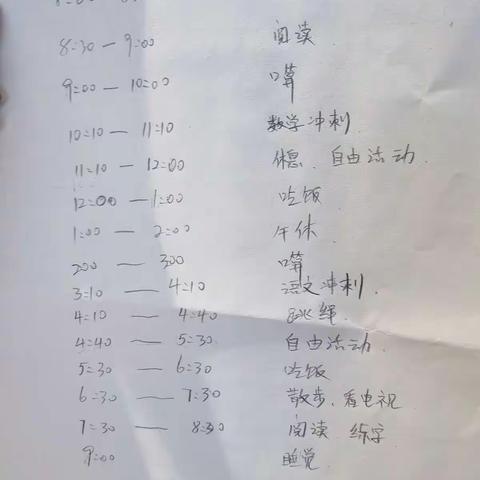 8:30 — 9:00 阅读
9:00 — 10:00 口算
10:10 — 11:10 数学冲刺.
11:10 — 12:00 休息、自由活动.
12:00 — 1:00 吃饭
1:00 — 2:00 午休.
200 — 300 口算
3:10 — 4:10 语文冲刺.
4:10 — 4:40 跳绳.
4:40 — 5:30 自由活动.
5:30 — 6:30 吃饭
6:30 — 7:30 散步、看电视
7:30 — 8:30 阅读 练字
9:00 睡觉.